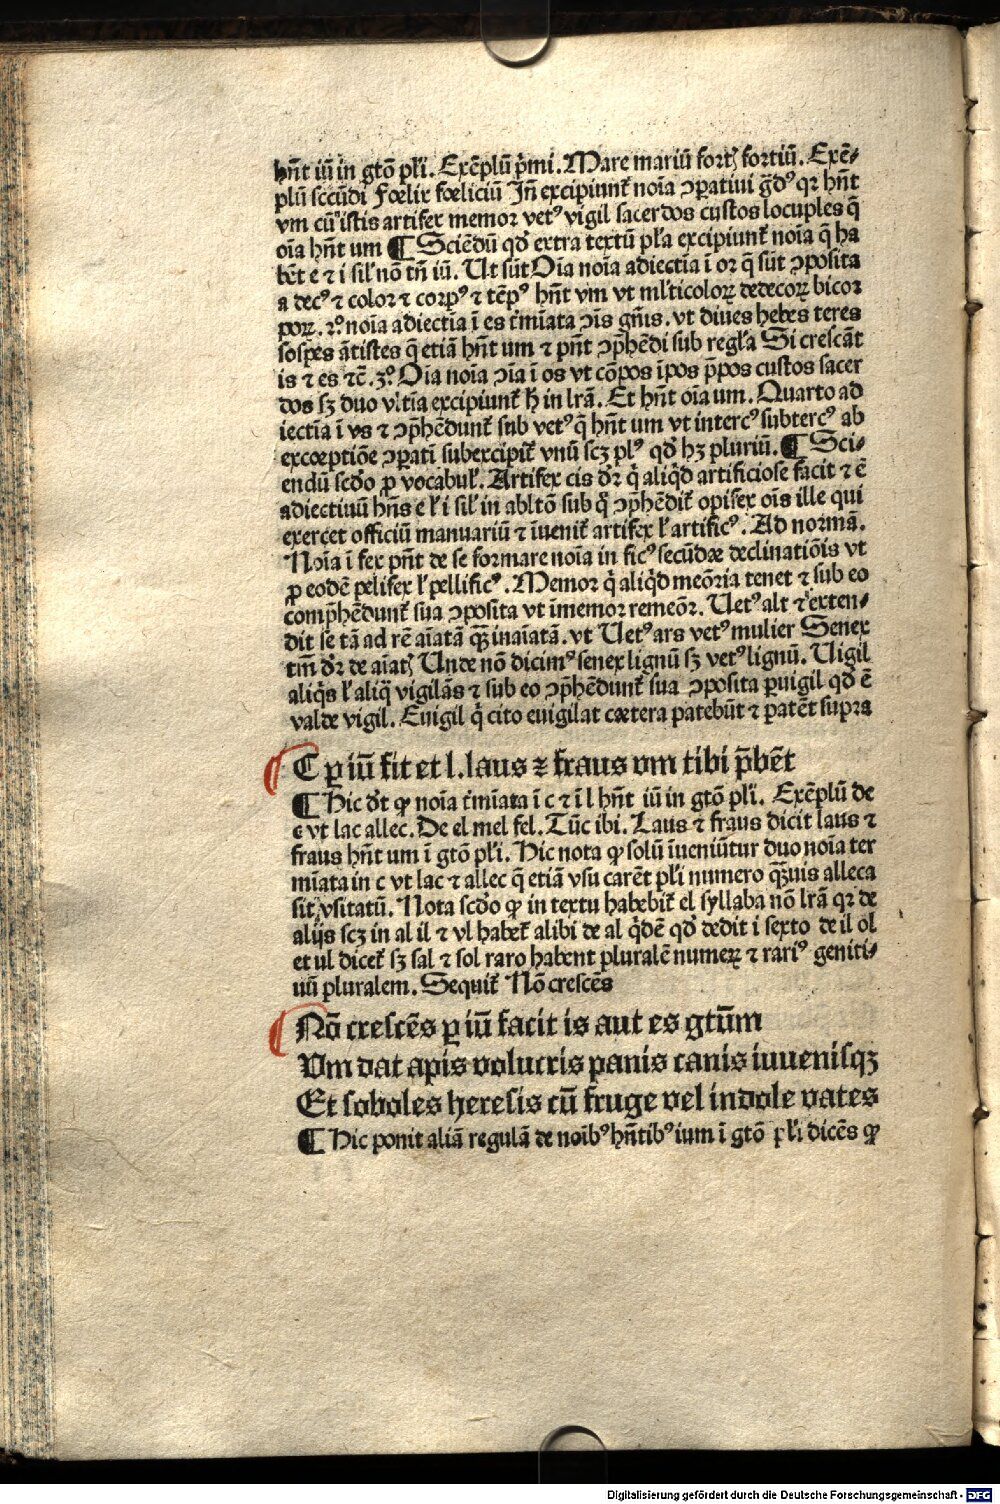 hn̄t iū in gtō pl̄i. Exēplū p̄mi. Mare mariū fortꝭ fortiū. Exē-
plū sccūdi Fœlix fœliciū Jn̄ excipiunt᷑ noīa ꝯꝑatiui gͣdꝰ qꝛ hn̄t
vm cū istis artifex memor vetꝰ vigil sacerdos custos locuples q̄
oīa hn̄t um ¶ Sciēdū qd̓ extra textū pl̓a excipiunt᷑ noīa q̄ ha
bēt e ⁊ i sil̓ nō tn̄ iū. Ut sūt Oīa noīa adiectīa ī or q̄ sūt ꝯposita
a decꝰ ⁊ color ⁊ corpꝰ ⁊ tēpꝰ hn̄t vm vt ml̓ticoloꝝ dedecoꝝ bicor
poꝝ. 2⁰ noīa adiectīa ī es t̓mīata ꝯīs gn̄is. vt diues hebes teres
sospes ātistes q̄ etiā hn̄t um ⁊ pn̄t ꝯp̄hēdi sub regl̓a Si crescāt
is ⁊ es ⁊c̄. 3⁰ Oīa noīa ꝯīa ī os vt cōpos īpos p̄pos custos sacer
dos sꝫ duo vl̓tīa excipiunt᷑ h̄ in lr̄a. Et hn̄t oīa um. Quarto ad
iectīa ī vs ⁊ ꝯp̄hēdunt᷑ sub vetꝰ q̄ hn̄t um vt intercꝰ subtercꝰ ab
exceptiōe ꝯꝑati subexcipit᷑ vnū scꝫ plꝰ qd̓ hꝫ pluriū. ¶ Sci-
endū scd̓o ꝓ vocabul̓. Artifex cis d̓r q̓ aliq̓d artificiose facit ⁊ ē
adiectiuū hn̄s e l̓ i sil̓ in abltō sub q̊ ꝯp̄hēdit᷑ opifex oīs ille qui
exercet officiū manuariū ⁊ īuenit᷑ artifex l̓ artificꝰ. Ad normā.
Noīa ī fex pn̄t de se formare noīa in ficꝰ secūdæ declinatiōis vt
ꝓ eodē pelifex l̓ pellificꝰ. Memor q̓ aliq̓d meōria tenet ⁊ sub eo
comp̄hēdunt᷑ sua ꝯposita vt īmemor remeōr. Uetꝰ alt ⁊ exten-
dit se tā ad rē aīatā qꝫ̄ inaīatā. vt Uetꝰ ars vetꝰ mulier Senex
tm̄ d̓r de aīatꝭ Unde nō dicimꝰ senex lignū sꝫ vetꝰ lignū. Uigil
aliq̓s l̓ aliq̄ vigilās ⁊ sub eo ꝯp̄hēdunt᷑ sua ꝯposita ꝑuigil qd̓ ē
valde vigil. Euigil q̓ cito euigilat cætera patebūt ⁊ patēt supra
C ꝑ iū fit et l. laus ⁊ fraus vm tibi p̄bēt
¶ Hic d̓t ꝙ noīa t̓mīata ī c ⁊ ī l hn̄t iū in gtō pl̓i. Exēplū de
c vt lac allec. De el mel fel. Tūc ibi. Laus ⁊ fraus dicit laus ⁊
fraus hn̄t um ī gtō pl̓i. Hic nota ꝙ solū īueniūtur duo noīa ter
mīata in c vt lac ⁊ allec q̄ etiā vsu carēt pl̓i numero qꝫ̄uis alleca
sit vsitatū. Nota scd̓o ꝙ in textu habebit᷑ el syllaba nō lr̄a qꝛ de
alijs scꝫ in al il ⁊ vl habet᷑ alibi de al q̓dē qd̓ dedit i sexto de il ol
et ul dicet᷑ sꝫ sal ⁊ sol raro habent pluralē numeꝝ ⁊ rariꝰ geniti-
uū pluralem. Sequit᷑ Nō crescēs
Nō crescēs ꝑ iū facit is aut es gtūm
Vm dat apis volucris panis canis iuuenisqꝫ
Et soboles heresis cū fruge vel indole vates
¶ Hic ponit aliā regulā de noībꝰ hn̄tibꝰ ium ī gtō pl̓i dicēs ꝙ
Digitalisierung gefördert durch die Deutsche Forschungsgemeinschaft - DFG